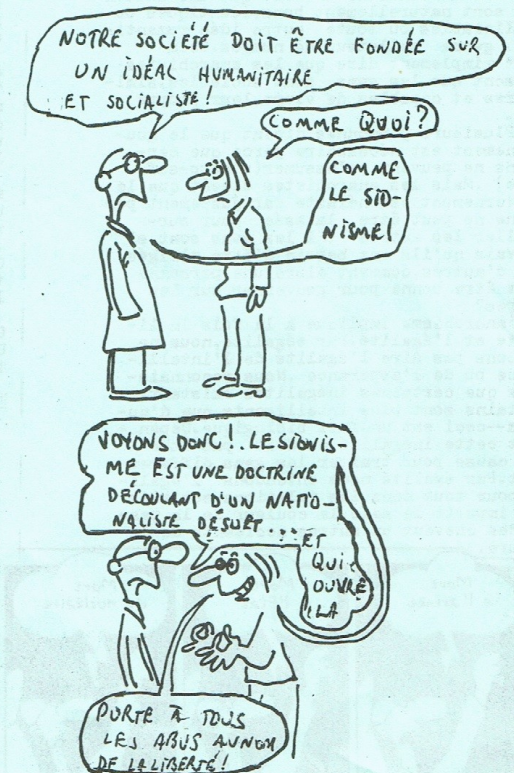 NOTRE SOCIÉTÉ DOIT ÊTRE FONDÉE SUR
UN IDÉAL HUMANITAIRE
ET SOCIALISTE!
COMME QUOI?
COMME
LE SIO-
NISME!
VOYONS DONC! LE SIONIS-
ME EST UNE DOCTRINE
DÉCOULANT D'UN NATIO-
NALISTE DÉSUET...
ET
QUI
OUVRE
LA
PORTE À TOUS
LES ABUS AU NOM
DE LA LIBERTÉ!